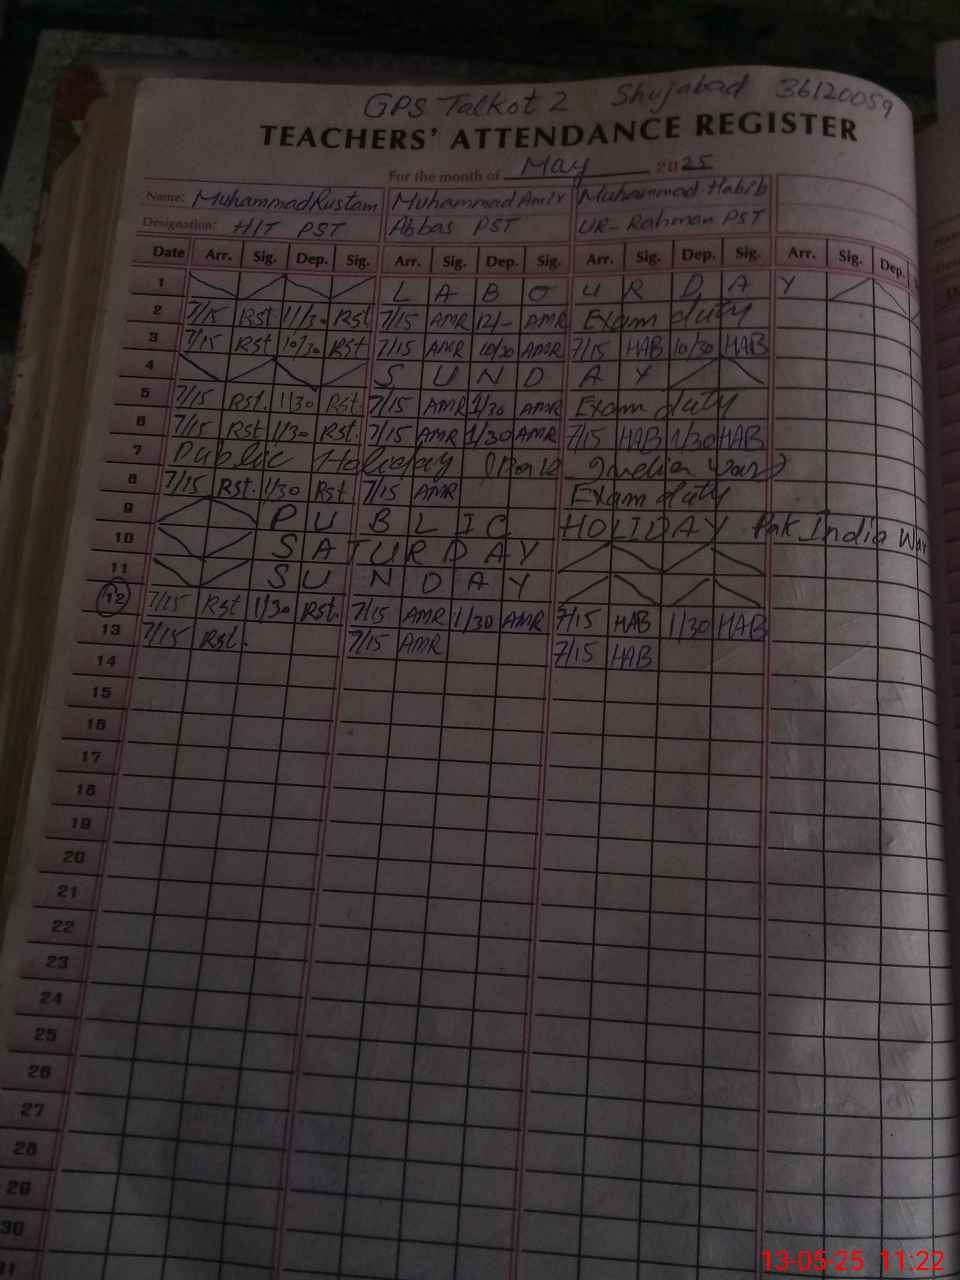 GPS Talkot 2 Shujabad 36120059
TEACHERS' ATTENDANCE REGISTER
For the month of May 2025
Name: Muhammad Rustam Muhammad Amir Muhammad Habib
Designation: H/T PST Abbas PST UR-Rahman PST
Date Arr. Sig. Dep. Sig. Arr. Sig. Dep. Sig. Arr. Sig. Dep. Sig. Arr. Sig. Dep.
1 L A B O U R D A Y
2 7/15 Rst 11/30 Rst 7/15 AMR 12/- AMR Exam duty
3 7/15 Rst 10/30 Rst 7/15 AMR 10/30 AMR 7/15 HAB 10/30 HAB
4 S U N D A Y
5 7/15 Rst. 1/30 Rst. 7/15 AMR 1/30 AMR Exam duty
6 7/15 Rst 1/30 Rst. 7/15 AMR 1/30 AMR 7/15 HAB 1/30 HAB
7 Public Holiday Indian War)
8 7/15 Rst. 1/30 Rst 7/15 AMR Exam duty
9 P U B L I C HOLIDAY Pak India War
10 S A T U R D A Y
11 S U N D A Y
12 7/15 Rst 1/30 Rst. 7/15 AMR 1/30 AMR 7/15 HAB 1/30 HAB
13 7/15 Rst. 7/15 AMR 7/15 HAB
14
15
16
17
18
19
20
21
22
23
24
25
26
27
28
29
30
13-05-25 11:22